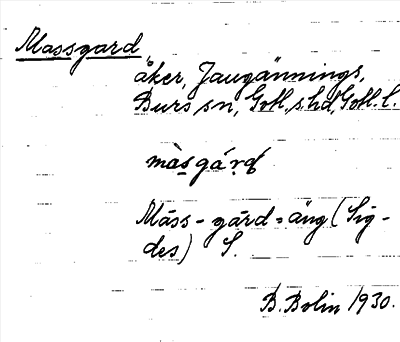 Massgard
åker, Jaugännings,
Burs sn, Gotl. s. hd, Gotl. l.
màsgárd
Máss-gárd-äng (Sig-
des) S.
B. Bolin 1930.